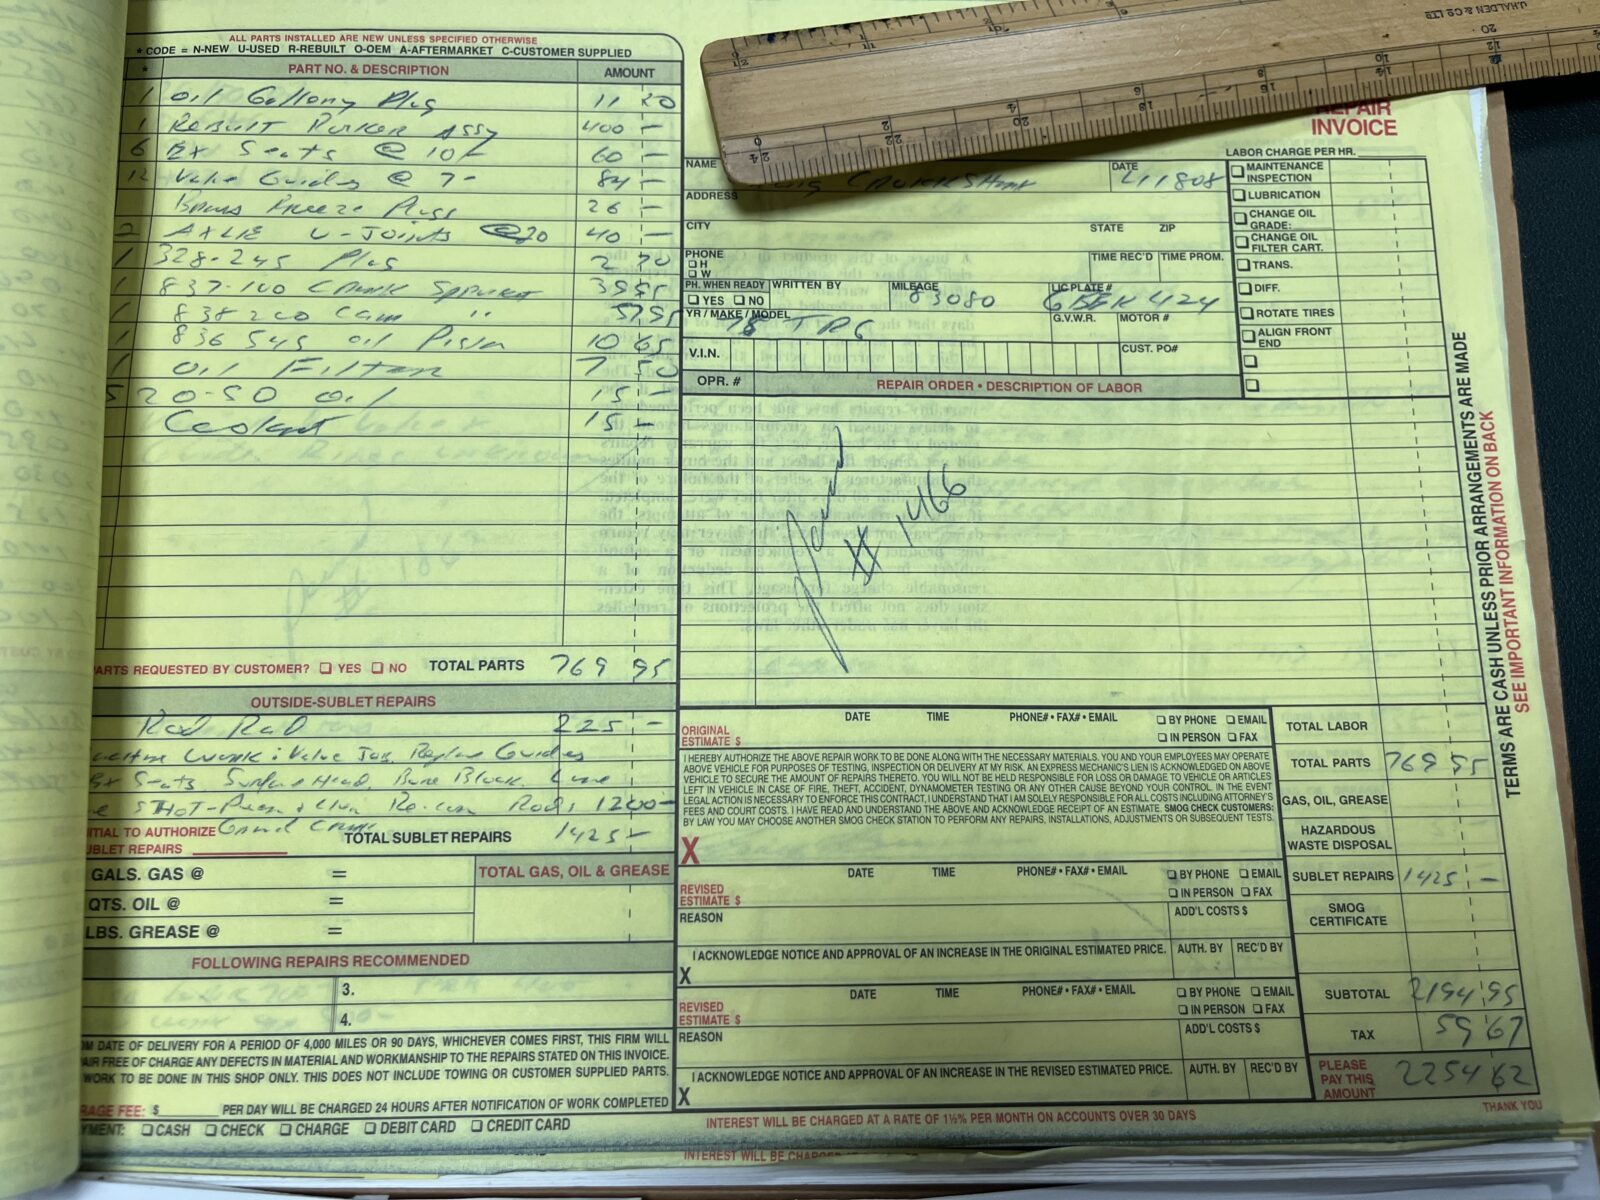 ALL PARTS INSTALLED ARE NEW UNLESS SPECIFIED OTHERWISE
* CODE = N-NEW U-USED R-REBUILT O-OEM A-AFTERMARKET C-CUSTOMER SUPPLIED
* PART NO. & DESCRIPTION AMOUNT
1 Oil Gallony Plug 11 20
1 Rebuilt Rocker Assy 400 -
6 Ex Seats @ 10- 60 -
12 Valve Guides @ 7- 84 -
Brass Freeze Plugs 26 -
2 AXLE U-Joints @20 40 -
1 328-245 Plug 2 70
1 837-100 Crank Sprocket 39 95
1 838 200 Cam " 57 95
1 836 545 oil Piston 10 65
1 Oil Filter 7 50
5 20-50 Oil 15 -
Coolant 15 -
ARTS REQUESTED BY CUSTOMER? YES NO TOTAL PARTS 769 95
OUTSIDE-SUBLET REPAIRS
Rod Rad 225 -
work: Valve Job, Replace Guides
Ex Seats, Surface Head, Bore Block,
Hot-Rinse & Re-con Rods 1200-
ITIAL TO AUTHORIZE Grind Crank
UBLET REPAIRS TOTAL SUBLET REPAIRS 1425 -
GALS. GAS @ = TOTAL GAS, OIL & GREASE
QTS. OIL @ =
LBS. GREASE @ =
FOLLOWING REPAIRS RECOMMENDED
3.
4.
OM DATE OF DELIVERY FOR A PERIOD OF 4,000 MILES OR 90 DAYS, WHICHEVER COMES FIRST, THIS FIRM WILL
AIR FREE OF CHARGE ANY DEFECTS IN MATERIAL AND WORKMANSHIP TO THE REPAIRS STATED ON THIS INVOICE.
WORK TO BE DONE IN THIS SHOP ONLY. THIS DOES NOT INCLUDE TOWING OR CUSTOMER SUPPLIED PARTS.
RAGE FEE: $ PER DAY WILL BE CHARGED 24 HOURS AFTER NOTIFICATION OF WORK COMPLETED
YMENT: CASH CHECK CHARGE DEBIT CARD CREDIT CARD
J.HALDEN & CO LTD
REPAIR
INVOICE
LABOR CHARGE PER HR.
NAME DATE 411808
ADDRESS
CITY STATE ZIP
PHONE H W TIME REC'D TIME PROM.
PH. WHEN READY YES NO WRITTEN BY MILEAGE 83080 LIC PLATE # 6BER424
YR / MAKE / MODEL 75 TR6 G.V.W.R. MOTOR #
V.I.N. CUST. PO#
OPR. # REPAIR ORDER • DESCRIPTION OF LABOR
MAINTENANCE INSPECTION
LUBRICATION
CHANGE OIL GRADE:
CHANGE OIL FILTER CART.
TRANS.
DIFF.
ROTATE TIRES
ALIGN FRONT END
# 1466
TERMS ARE CASH UNLESS PRIOR ARRANGEMENTS ARE MADE
SEE IMPORTANT INFORMATION ON BACK
ORIGINAL ESTIMATE $ DATE TIME PHONE# • FAX# • EMAIL BY PHONE EMAIL IN PERSON FAX
I HEREBY AUTHORIZE THE ABOVE REPAIR WORK TO BE DONE ALONG WITH THE NECESSARY MATERIALS. YOU AND YOUR EMPLOYEES MAY OPERATE
ABOVE VEHICLE FOR PURPOSES OF TESTING, INSPECTION OR DELIVERY AT MY RISK. AN EXPRESS MECHANIC'S LIEN IS ACKNOWLEDGED ON ABOVE
VEHICLE TO SECURE THE AMOUNT OF REPAIRS THERETO. YOU WILL NOT BE HELD RESPONSIBLE FOR LOSS OR DAMAGE TO VEHICLE OR ARTICLES
LEFT IN VEHICLE IN CASE OF FIRE, THEFT, ACCIDENT, DYNAMOMETER TESTING OR ANY OTHER CAUSE BEYOND YOUR CONTROL. IN THE EVENT
LEGAL ACTION IS NECESSARY TO ENFORCE THIS CONTRACT, I UNDERSTAND THAT I AM SOLELY RESPONSIBLE FOR ALL COSTS INCLUDING ATTORNEY'S
FEES AND COURT COSTS. I HAVE READ AND UNDERSTAND THE ABOVE AND ACKNOWLEDGE RECEIPT OF AN ESTIMATE. SMOG CHECK CUSTOMERS:
BY LAW YOU MAY CHOOSE ANOTHER SMOG CHECK STATION TO PERFORM ANY REPAIRS, INSTALLATIONS, ADJUSTMENTS OR SUBSEQUENT TESTS.
X
REVISED ESTIMATE $ DATE TIME PHONE# • FAX# • EMAIL BY PHONE EMAIL IN PERSON FAX
REASON ADD'L COSTS $
I ACKNOWLEDGE NOTICE AND APPROVAL OF AN INCREASE IN THE ORIGINAL ESTIMATED PRICE. AUTH. BY REC'D BY
X
REVISED ESTIMATE $ DATE TIME PHONE# • FAX# • EMAIL BY PHONE EMAIL IN PERSON FAX
REASON ADD'L COSTS $
I ACKNOWLEDGE NOTICE AND APPROVAL OF AN INCREASE IN THE REVISED ESTIMATED PRICE. AUTH. BY REC'D BY
X
TOTAL LABOR
TOTAL PARTS 769 95
GAS, OIL, GREASE
HAZARDOUS WASTE DISPOSAL
SUBLET REPAIRS 1425 -
SMOG CERTIFICATE
SUBTOTAL 2194 95
TAX 59 67
PLEASE PAY THIS AMOUNT 2254 62
INTEREST WILL BE CHARGED AT A RATE OF 1½% PER MONTH ON ACCOUNTS OVER 30 DAYS
THANK YOU
INTEREST WILL BE CHARGED